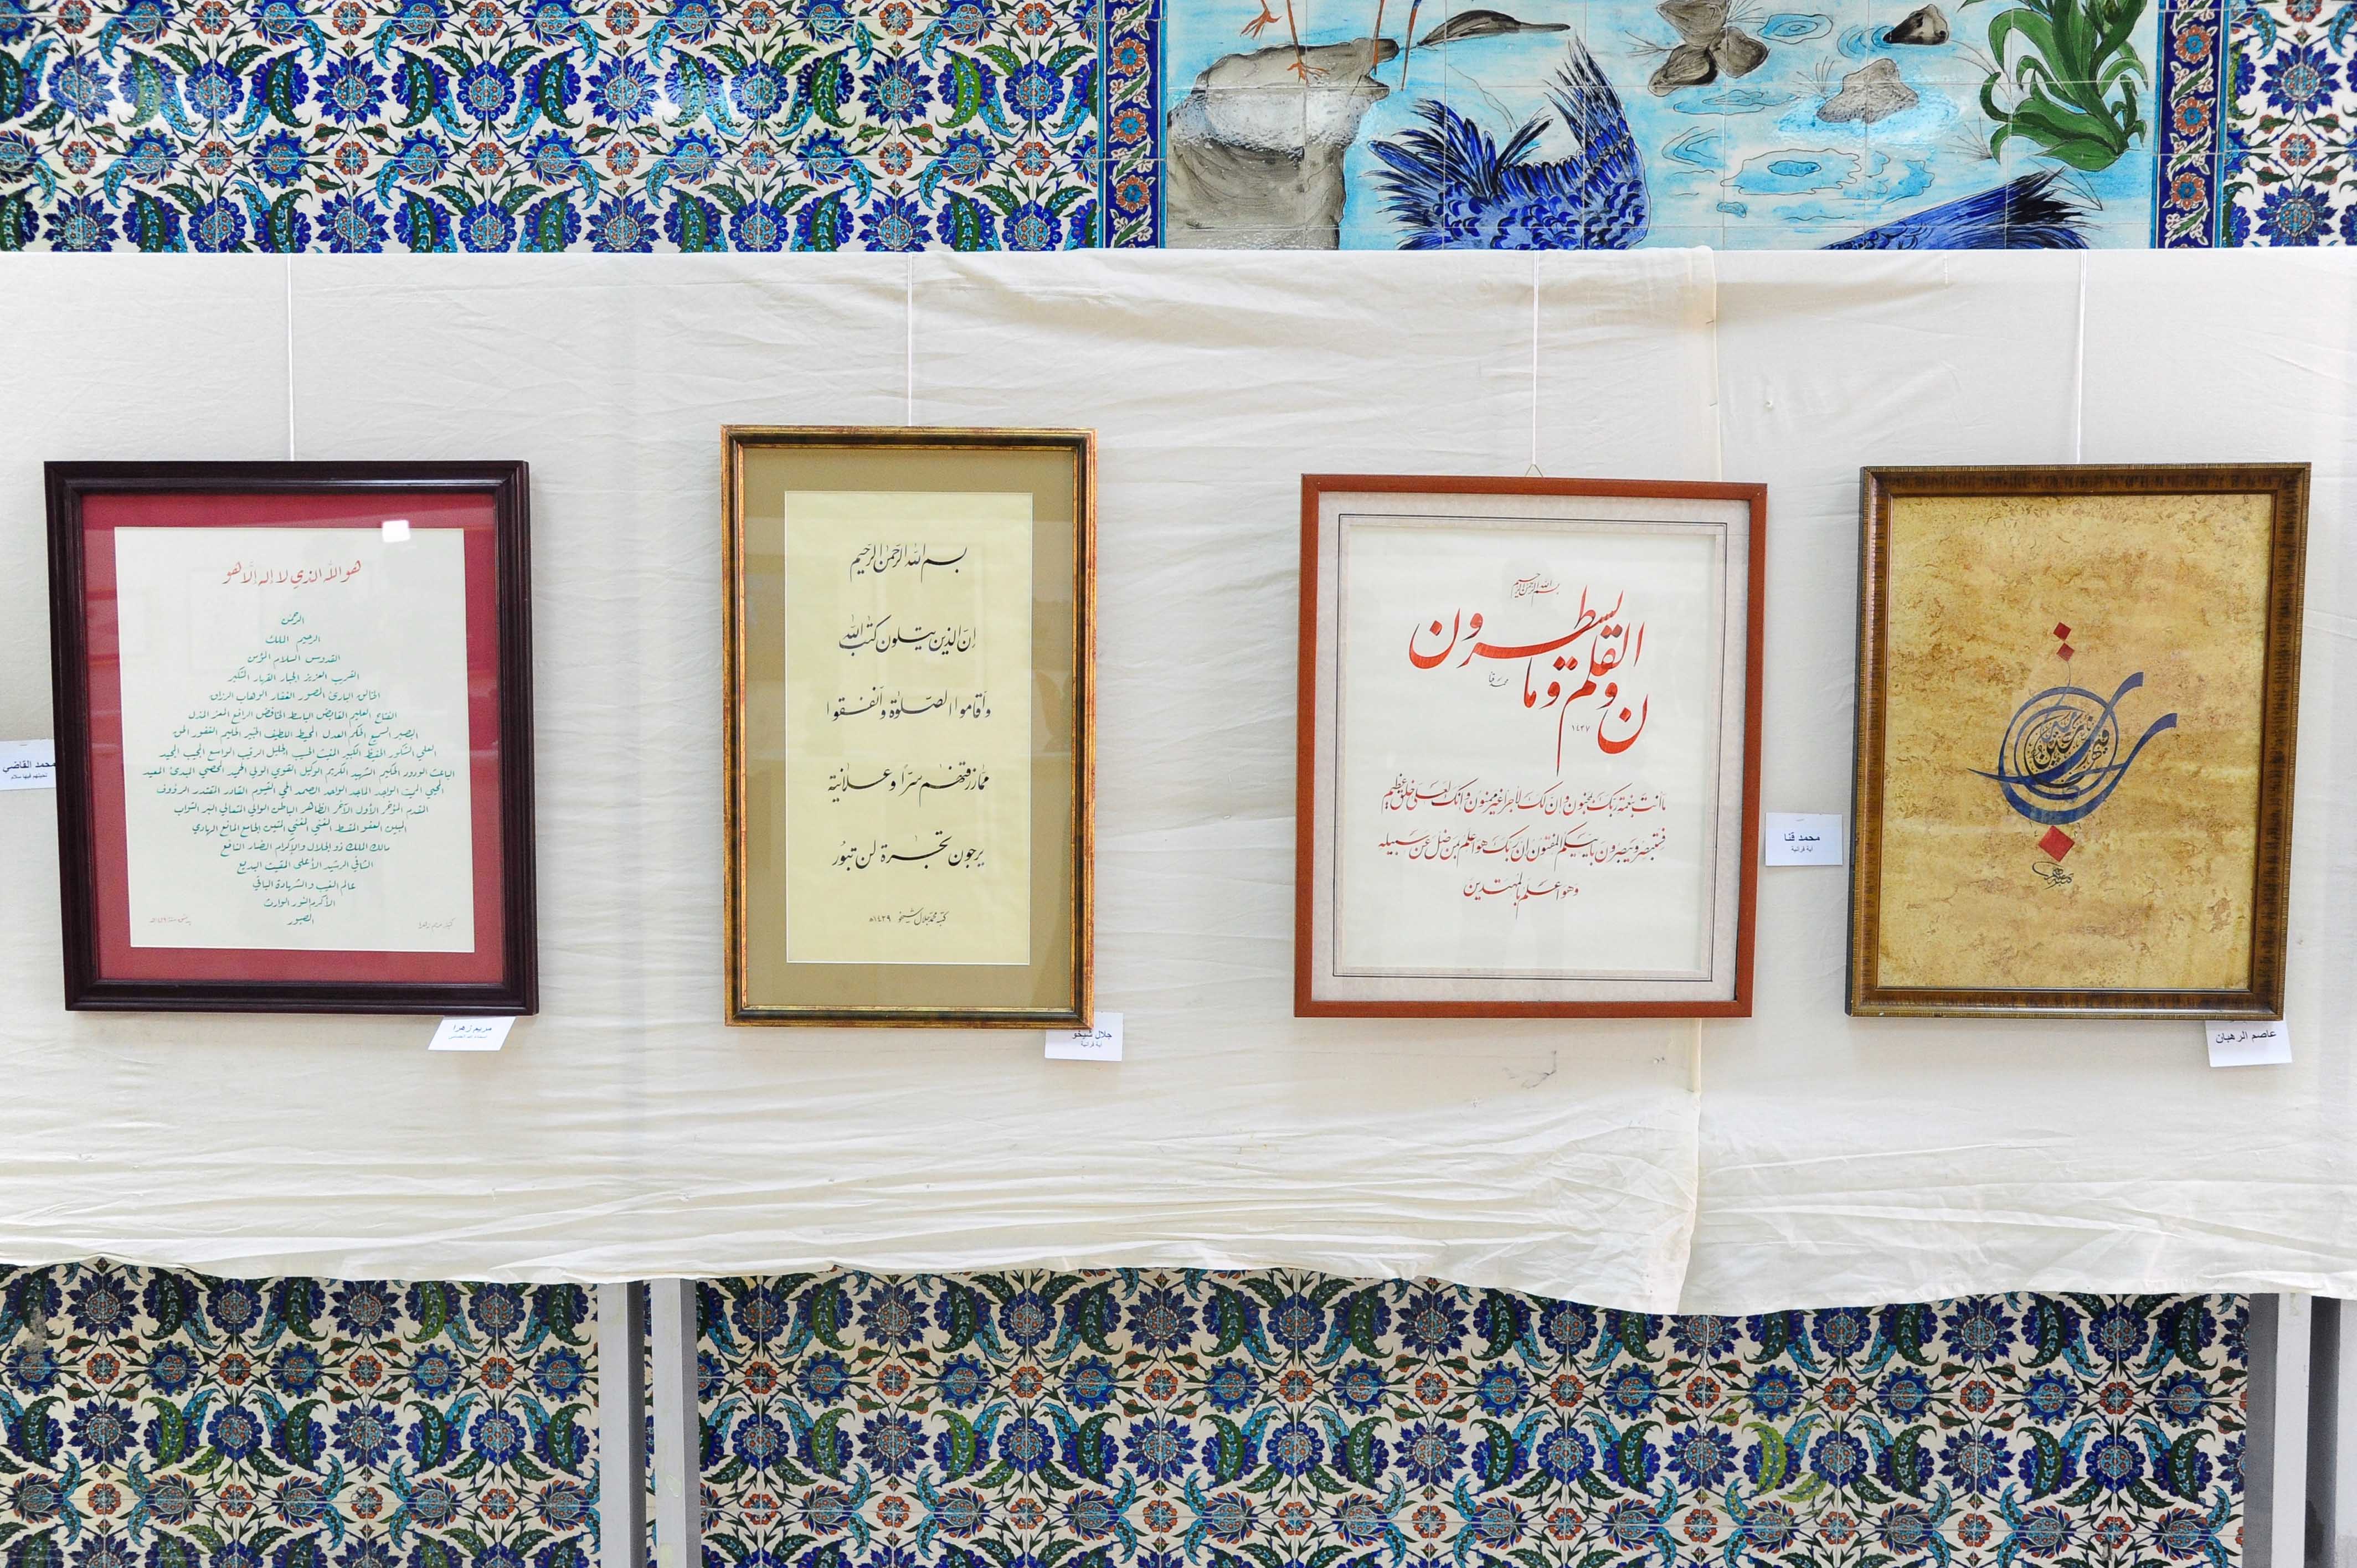 هو الله الذي لا إله إلا هو
الرحمن
الرحيم الملك
القدوس السلام المؤمن
القريب العزيز الجبار القهار المتكبر
الخالق البارئ المصور الغفار الوهاب الرزاق
الفتاح العليم القابض الباسط الخافض الرافع المعز المذل
البصير السميع الحكم العدل المحيط اللطيف الخبير الحليم الغفور الحق
العلي الشكور الحفيظ الكبير المقيت الحسيب الجليل الرقيب الواسع المجيب المجيد
الباعث الودود الحكيم الشهيد الكريم الوكيل القوي الولي الحميد المحصي المبدئ المعيد
المحيي المميت الواجد الماجد الواحد الصمد الحي القيوم القادر المقتدر الرؤوف
المقدم المؤخر الأول الآخر الظاهر الباطن الوالي المتعالي البر التواب
المبين العفو المقسط الغني المغني المتين الجامع المانع الهادي
مالك الملك ذو الجلال والإكرام الضار النافع
الشافي الرشيد الأعلى المقيت البديع
عالم الغيب والشهادة الباقي
الأكرم النور الوارث
الصبور
مريم زهرا
محمد القاضي
تحيتهم فيها سلام
بسم الله الرحمن الرحيم
إن الذين يتلون كتب الله
وأقاموا الصلوة وأنفقوا
مما رزقنهم سرا وعلانية
يرجون تجرة لن تبور
كتبه محمد جلال شيخو ١٤٢٩ه
جلال شيخو
آية قرآنية
بسم الله الرحمن الرحيم
ن والقلم وما يسطرون
١٤٣٧
ما أنت بنعمة ربك بمجنون وإن لك لأجرا غير ممنون وإنك لعلى خلق عظيم
فستبصر ويبصرون بأييكم المفتون إن ربك هو أعلم بمن ضل عن سبيله
وهو أعلم بالمهتدين
محمد قنا
آية قرآنية
عاصم الرهبان